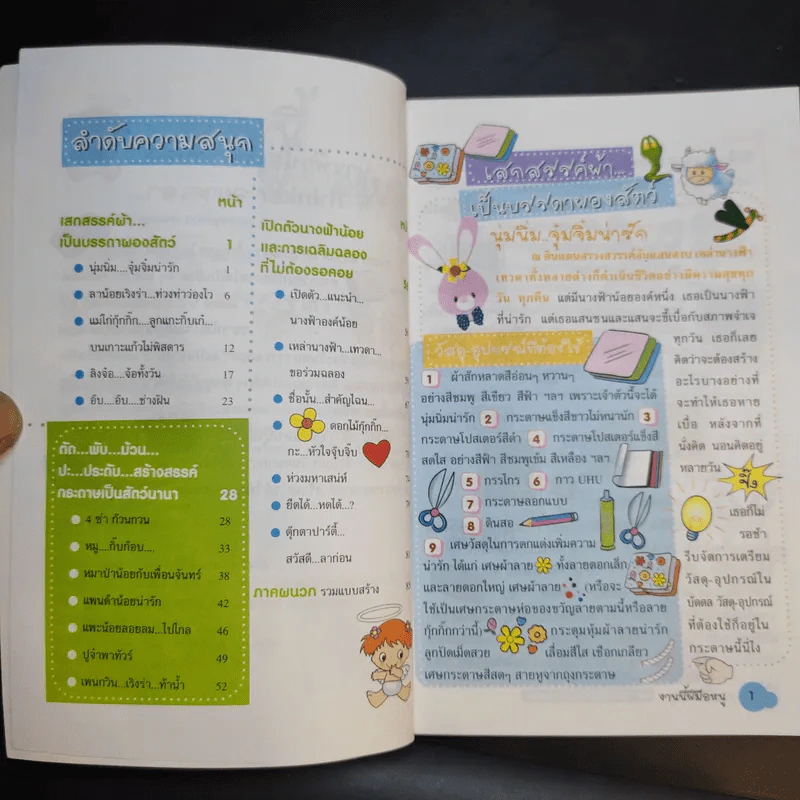 ลำดับความสนุก
หน้า
เสกสรรค์ผ้า...
เป็นบรรดาผองสัตว์ 1
นุ่มนิ่ม....จุ๋มจิ๋มน่ารัก 1
ลาน้อยเริงร่า...ท่วงท่าว่องไว 6
แม่ไก่กุ๊กกิ๊ก....ลูกแกะกิ๊บเก๋
บนเกาะแก้วไม่พิสดาร 12
ลิงจ๋อ....จ้อทั้งวัน 17
ฮึบ....ฮึบ....ช่างฝัน 23
ตัด...พับ...ม้วน...
ปะ...ประดับ...สร้างสรรค์
กระดาษเป็นสัตว์นานา 28
4 ช่า ก๊วนกวน 28
หมู....กิ๊บก๊อบ.... 33
หมาป่าน้อยกับเพื่อนจันทร์ 38
แพนด้าน้อยน่ารัก 42
แพะน้อยลอยลม...ไปไกล 46
ปูจ๋าพาทัวร์ 49
เพนกวิน...เริงร่า...ท้าน้ำ 52
เปิดตัวนางฟ้าน้อย
และการเฉลิมฉลอง
ที่ไม่ต้องรอคอย
เปิดตัว...แนะนำ...
นางฟ้าองค์น้อย
เหล่านางฟ้า...เทวดา...
ขอร่วมฉลอง
ชื่อนั้น...สำคัญไฉน...
ดอกไม้กุ๊กกิ๊ก...
กะ...หัวใจจุ๊บจิ๊บ
ห่วงมหาเสน่ห์
ยืดได้...หดได้...?
ตุ๊กตาปาร์ตี้...
สวัสดี...ลาก่อน
ภาคผนวก รวมแบบสร้าง
เสกสรรค์ผ้า...
เป็นบรรดาผองสัตว์
นุ่มนิ่ม...จุ๋มจิ๋มน่ารัก
ณ ดินแดนสรวงสวรรค์อันแสนสงบ เหล่านางฟ้า
เทวดาทั้งหลายต่างก็ดำเนินชีวิตอย่างมีความสุขทุก
วัน ทุกคืน แต่มีนางฟ้าน้อยองค์หนึ่ง เธอเป็นนางฟ้า
ที่น่ารัก แต่เธอแสนซนและแสนจะขี้เบื่อกับสภาพจำเจ
ทุกวัน เธอก็เลย
คิดว่าจะต้องสร้าง
อะไรบางอย่างที่
จะทำให้เธอหาย
เบื่อ หลังจากที่
นั่งคิด นอนคิดอยู่
หลายวัน
ปิ๊ง
เธอก็ไม่
รอช้า
รีบจัดการเตรียม
วัสดุ-อุปกรณ์ใน
บัดดล วัสดุ-อุปกรณ์
ที่ต้องใช้ก็อยู่ใน
กระดาษนี้นี่ไง
วัสดุ-อุปกรณ์ที่ต้องใช้
1 ผ้าสักหลาดสีอ่อนๆ หวานๆ
อย่างสีชมพู สีเขียว สีฟ้า ฯลฯ เพราะเจ้าตัวนี้จะได้
นุ่มนิ่มน่ารัก 2 กระดาษแข็งสีขาวไม่หนานัก 3
กระดาษโปสเตอร์สีดำ 4 กระดาษโปสเตอร์แข็งสี
สดใส อย่างสีฟ้า สีชมพูเข้ม สีเหลือง ฯลฯ
5 กรรไกร 6 กาว UHU
7 กระดาษลอกแบบ
8 ดินสอ
9 เศษวัสดุในการตกแต่งเพิ่มความ
น่ารัก ได้แก่ เศษผ้าลาย ทั้งลายดอกเล็ก
และลายดอกใหญ่ เศษผ้าลาย (หรือจะ
ใช้เป็นเศษกระดาษห่อของขวัญลายตามนี้หรือลาย
กุ๊กกิ๊กกว่านี้) กระดุมหุ้มผ้าลายน่ารัก
ลูกปัดเม็ดสวย เลื่อมสีใส เชือกเกลียว
เศษกระดาษสีสดๆ สายหูจากถุงกระดาษ
งานนี้ฝีมือหนู 1